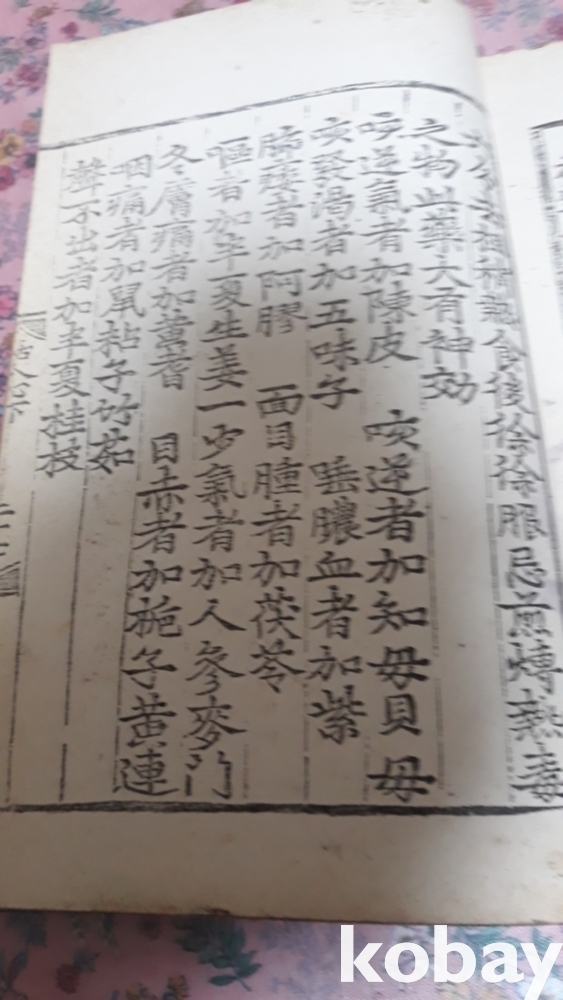 食後徐徐服忌煎煿熱毒
之物此藥大有神効
咳逆氣者加陳皮 咳逆者加知毋貝毋
咳發渴者加五味子 唾膿血者加紫
肺痿者加阿膠 面目腫者加茯苓
嘔者加半夏生姜一少氣者加人參麥門
冬膚痛者加黃耆 目赤者加梔子黃連
咽痛者加鼠粘子竹茹
聲不出者加半夏桂枝
kobay